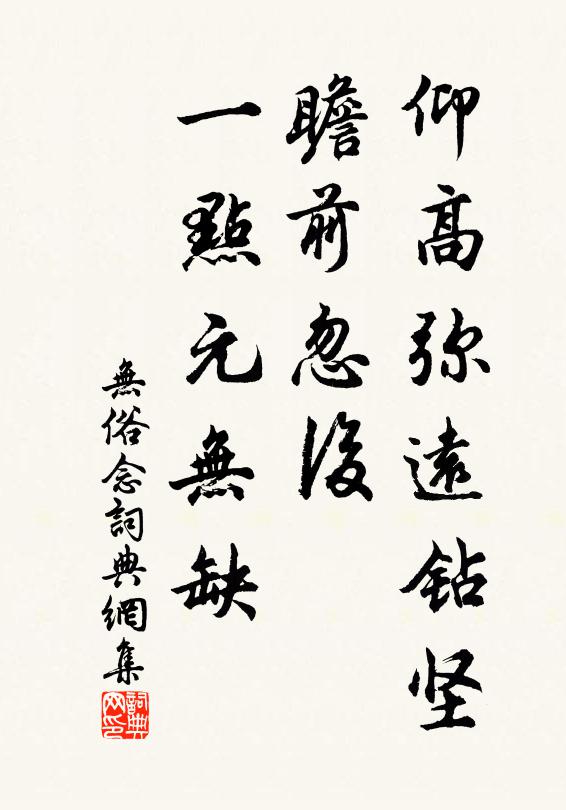 仰高弥遠钻坚
瞻前忽後
一點元無缺
無俗念詞典網集
詞典网印